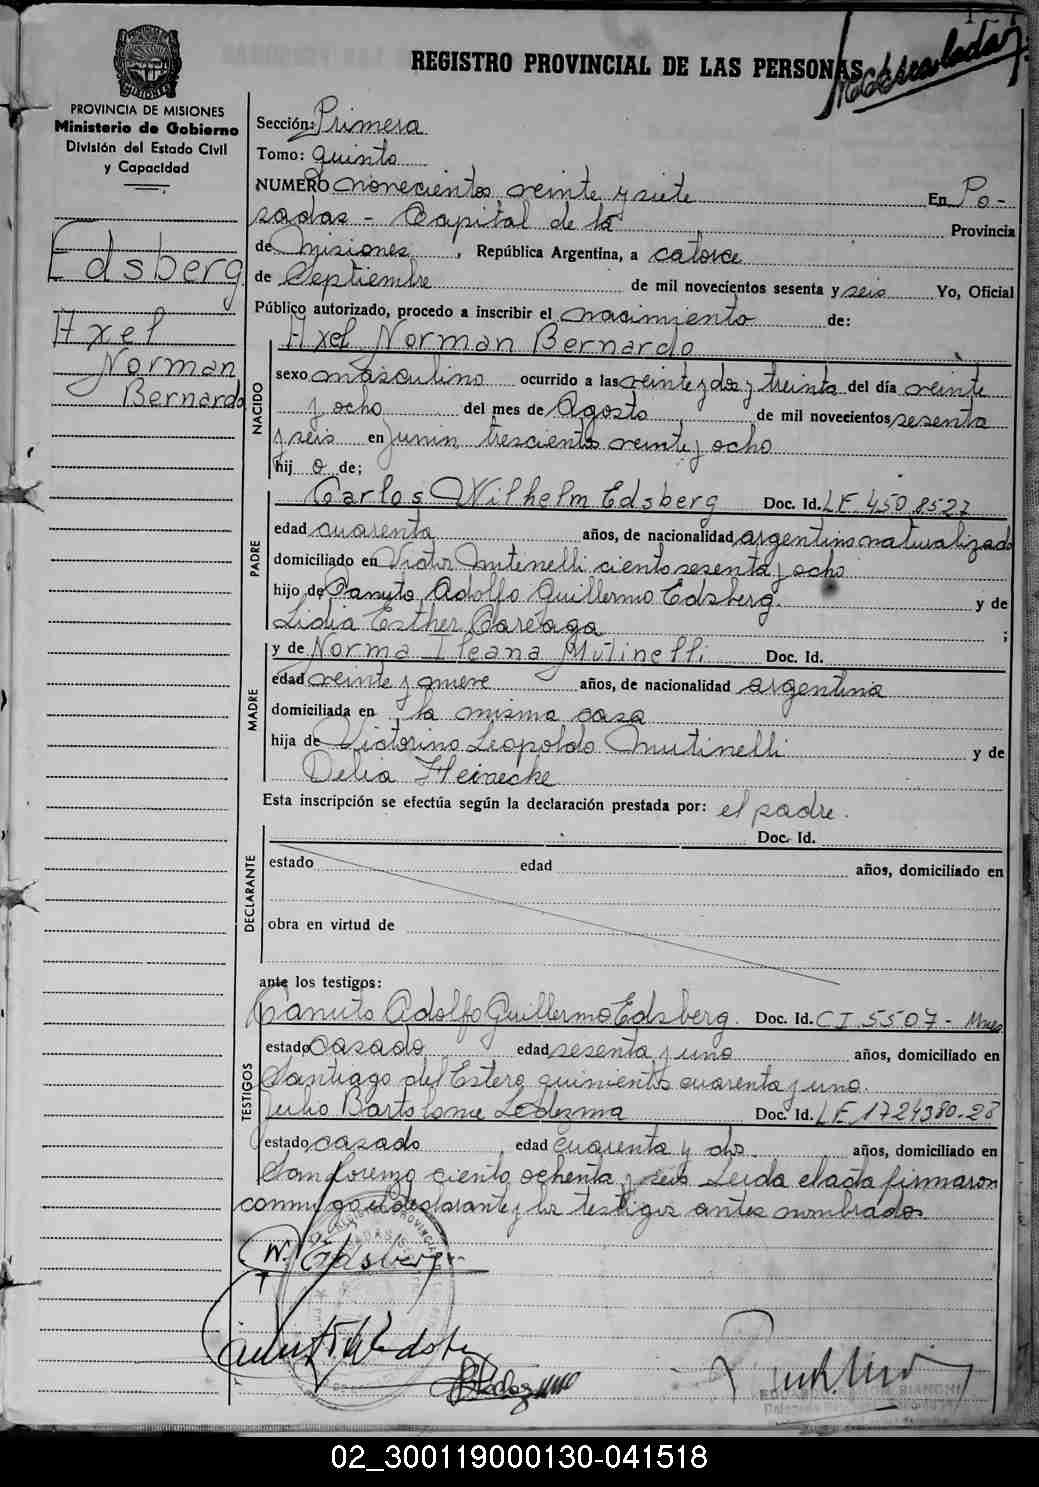 REGISTRO PROVINCIAL DE LAS PERSONAS
PROVINCIA DE MISIONES
Ministerio de Gobierno
División del Estado Civil
y Capacidad
Edsberg
Axel
Norman
Bernardo
Sección: Primera
Tomo: quinto
NUMERO novecientos veinte y siete En Po-
sadas - Capital de la Provincia
de Misiones, República Argentina, a catorce
de Septiembre de mil novecientos sesenta y seis Yo, Oficial
Público autorizado, procedo a inscribir el nacimiento de:
NACIDO
Axel Norman Bernardo
sexo masculino ocurrido a las veinte y dos y treinta del día veinte
y ocho del mes de Agosto de mil novecientos sesenta
y seis en Junin trescientos veinte y ocho
hij o de;
PADRE
Carlos Wilhelm Edsberg Doc. Id. LE. 450 8527
edad cuarenta años, de nacionalidad argentino naturalizado
domiciliado en Victor Mutinelli ciento sesenta y ocho
hijo de Canuto Adolfo Guillermo Edsberg y de
Lidia Esther Careaga ;
MADRE
y de Norma Ileana Mutinelli Doc. Id.
edad veinte y nueve años, de nacionalidad argentina
domiciliada en la misma casa
hija de Victorino Leopoldo Mutinelli y de
Delia Heinecke
Esta inscripción se efectúa según la declaración prestada por: el padre.
DECLARANTE
Doc. Id.
estado edad años, domiciliado en
obra en virtud de
ante los testigos:
TESTIGOS
Canuto Adolfo Guillermo Edsberg. Doc. Id. CI 5507 - Mnes
estado casado edad sesenta y uno años, domiciliado en
Santiago del Estero quinientos cuarenta y uno.
Julio Bartolome Ledezma Doc. Id. LE. 1724380-28
estado casado, edad cuarenta y dos años, domiciliado en
San Lorenzo ciento ochenta y seis Leida el acta firmaron
conmigo el declarante y los testigos antes nombrados
W. Edsberg
02_300119000130-041518